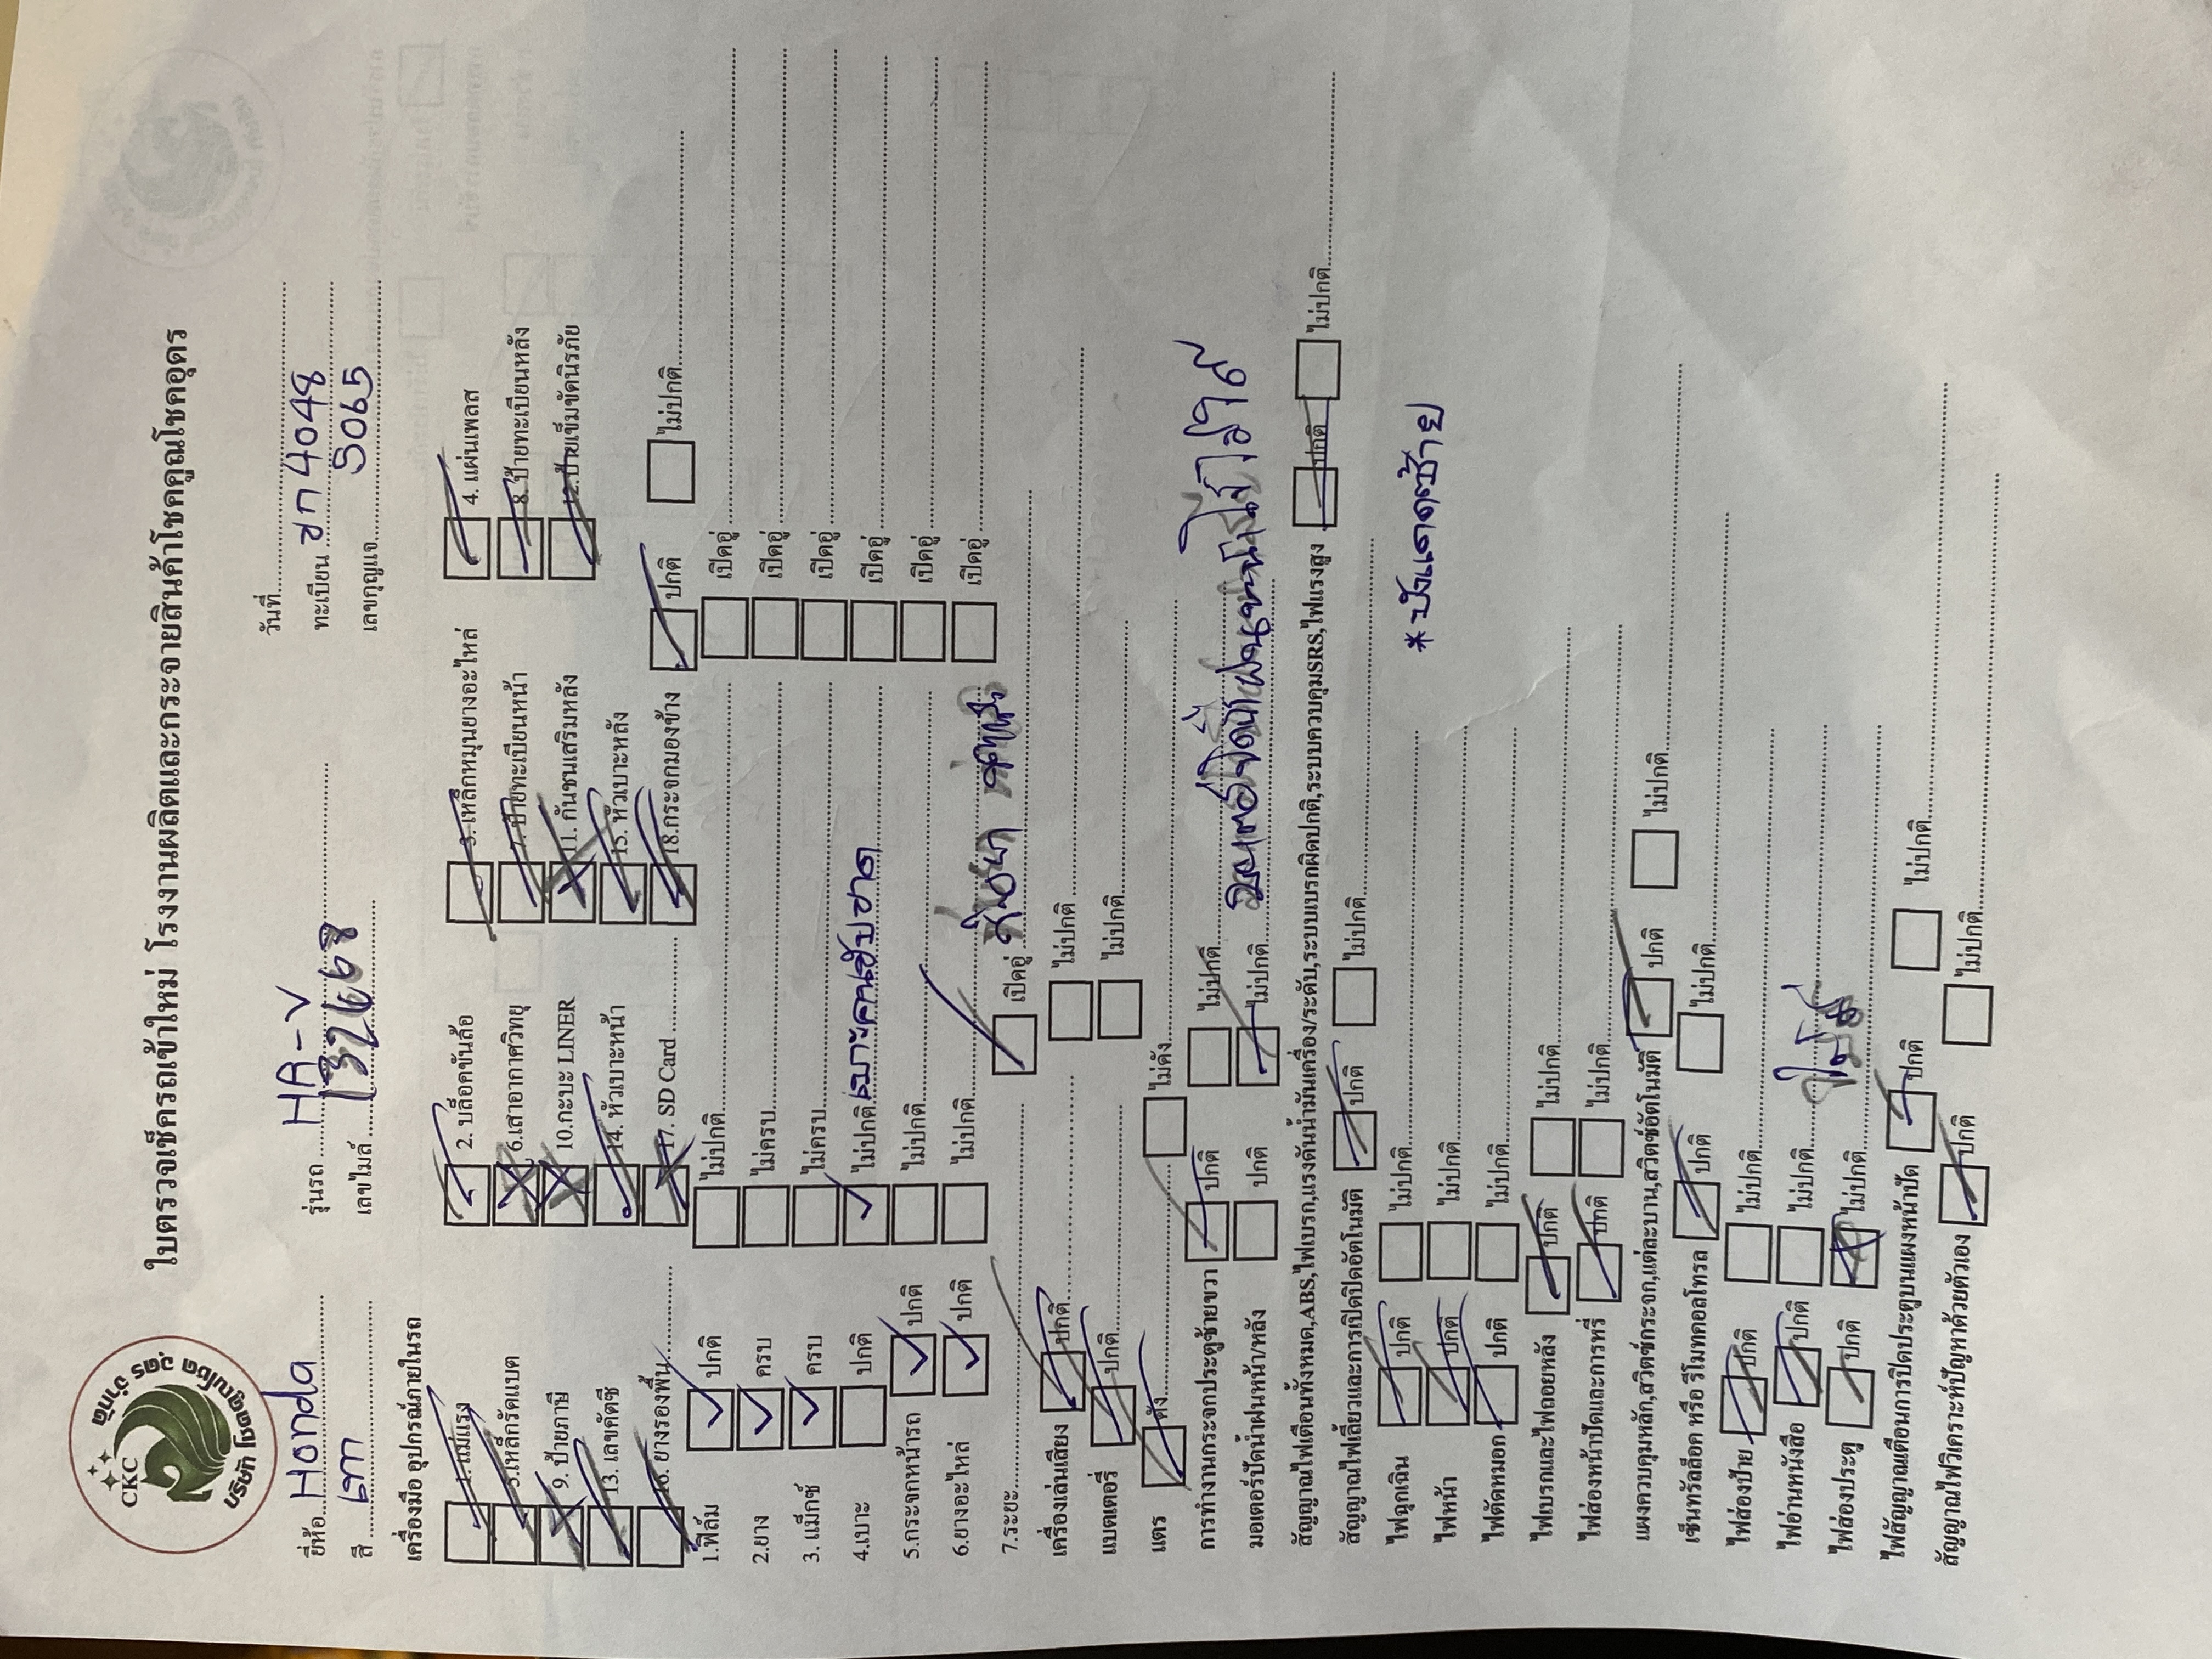 ใบตรวจเช็ครถเข้าใหม่ โรงงานผลิตและกระจายสินค้าโชคคูณโชคอุดร
CKC
บริษัท โชคคูณโชค อุดร จำกัด
วันที่
ยี่ห้อ Honda รุ่นรถ HR-V ทะเบียน ขก 4048
สี เทา เลขไมล์ 132668 เลขกุญแจ 5065
เครื่องมือ อุปกรณ์ภายในรถ
1. แม่แรง 2. บล็อคขันล้อ 3. เหล็กหมุนยางอะไหล่ 4. แผ่นเพลส
5. เหล็กรัดแบต 6.เสาอากาศวิทยุ 7. ป้ายทะเบียนหน้า 8. ป้ายทะเบียนหลัง
9. ป้ายภาษี 10.กะบะ LINER 11. กันชนเสริมหลัง 12.ป้ายเข็มขัดนิรภัย
13. เลขคัตซี 14. หัวเบาะหน้า 15. หัวเบาะหลัง
16. ยางรองพื้น 17. SD Card 18.กระจกมองข้าง ปกติ ไม่ปกติ
1.ฟิล์ม ปกติ ไม่ปกติ เปิดอู่
2.ยาง ครบ ไม่ครบ เปิดอู่
3. แม็กซ์ ครบ ไม่ครบ เปิดอู่
4.เบาะ ปกติ ไม่ปกติ เบาะคนขับขาด เปิดอู่
5.กระจกหน้ารถ ปกติ ไม่ปกติ เปิดอู่
6.ยางอะไหล่ ปกติ ไม่ปกติ เปิดอู่
7.ระยะ เปิดอู่
เครื่องเล่นเสียง ปกติ ไม่ปกติ
แบตเตอรี่ ปกติ ไม่ปกติ
แตร ดัง ไม่ดัง
การทำงานกระจกประตูซ้ายขวา ปกติ ไม่ปกติ
มอเตอร์ปัดน้ำฝนหน้า/หลัง ปกติ ไม่ปกติ
สัญญาณไฟเตือนทั้งหมด,ABS,ไฟเบรก,แรงดันน้ำมันเครื่อง/ระดับ,ระบบเบรกผิดปกติ,ระบบควบคุมSRS,ไฟแรงสูง ปกติ ไม่ปกติ
สัญญาณไฟเลี้ยวและการเปิดปิดอัตโนมัติ ปกติ ไม่ปกติ
ไฟฉุกเฉิน ปกติ ไม่ปกติ
* บังแดดซ้าย
ไฟหน้า ปกติ ไม่ปกติ
ไฟตัดหมอก ปกติ ไม่ปกติ
ไฟเบรกและไฟถอยหลัง ปกติ ไม่ปกติ
ไฟส่องหน้าปัดและการหรี่ ปกติ ไม่ปกติ
แผงควบคุมหลัก,สวิตช์กระจก,แต่ละบาน,สวิตช์อัตโนมัติ ปกติ ไม่ปกติ
เซ็นทรัลล็อค หรือ รีโมทคอลโทรล ปกติ ไม่ปกติ
ไฟส่องป้าย ปกติ ไม่ปกติ
ไฟอ่านหนังสือ ปกติ ไม่ปกติ
ไฟส่องประตู ปกติ ไม่ปกติ
ไฟสัญญาณเตือนการปิดประตูบนแผงหน้าปัด ปกติ ไม่ปกติ
สัญญาณไฟวิเคราะห์ปัญหาด้วยตัวเอง ปกติ ไม่ปกติ